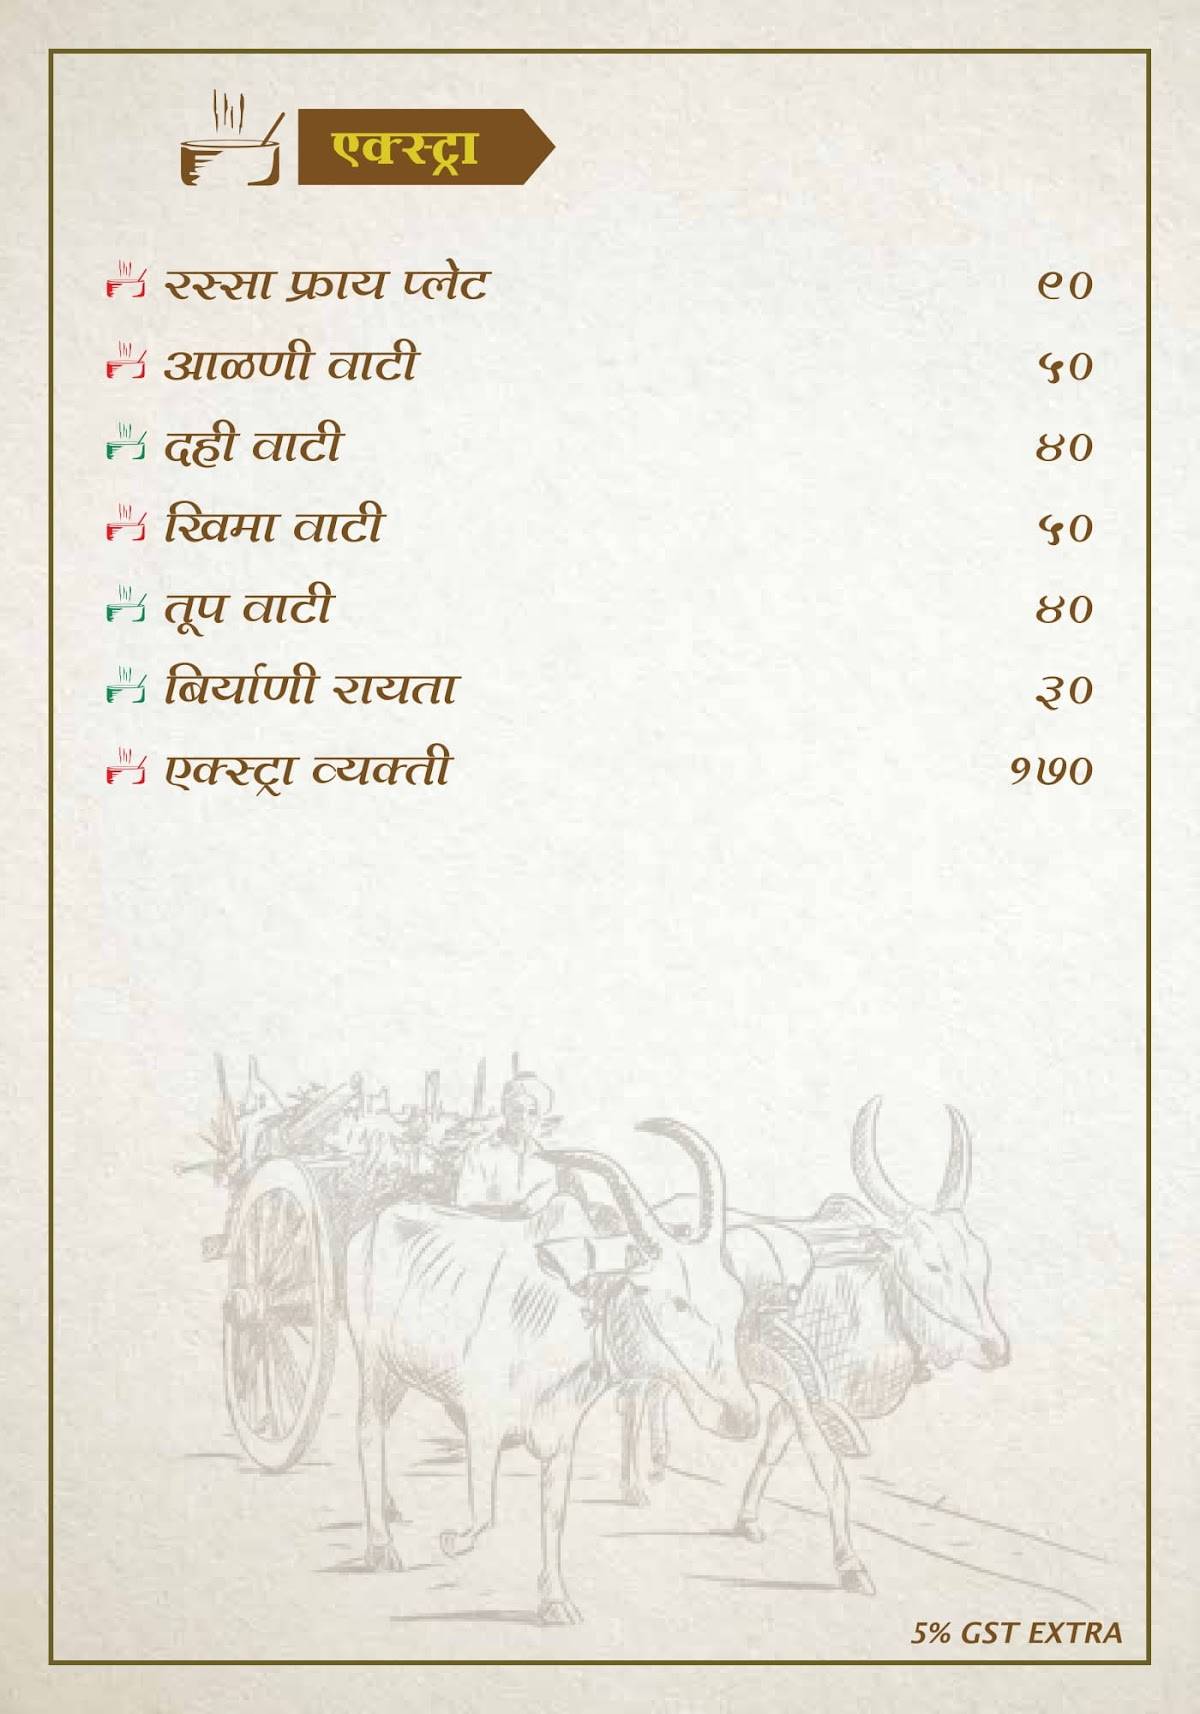 एक्स्ट्रा
रस्सा फ्राय प्लेट ९०
आळणी वाटी ५०
दही वाटी ४०
खिमा वाटी ५०
तूप वाटी ४०
बिर्याणी रायता ३०
एक्स्ट्रा व्यक्ती १७०
5% GST EXTRA